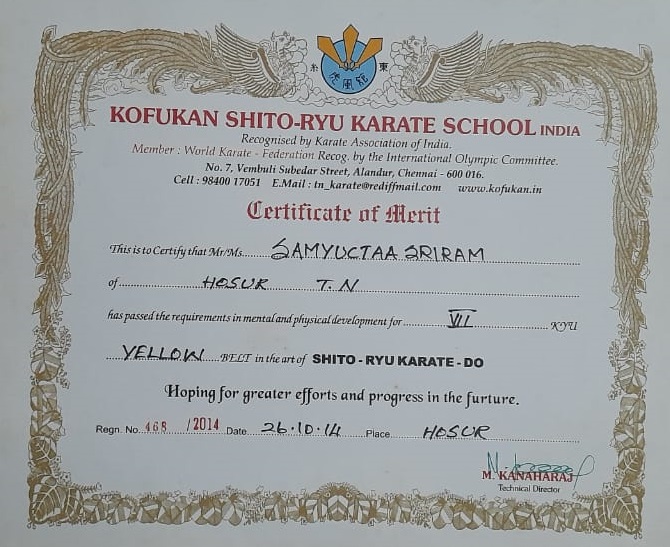 糸 東
虎風館
KOFUKAN SHITO-RYU KARATE SCHOOL INDIA
Recognised by Karate Association of India.
Member : World Karate - Federation Recog. by the International Olympic Committee.
No. 7, Vembuli Subedar Street, Alandur, Chennai - 600 016.
Cell : 98400 17051 E.Mail : tn_karate@rediffmail.com www.kofukan.in
Certificate of Merit
This is to Certify that Mr/Ms. SAMYUCTAA SRIRAM
of HOSUR T.N
has passed the requirements in mental and physical development for VII KYU
YELLOW BELT in the art of SHITO - RYU KARATE - DO
Hoping for greater efforts and progress in the furture.
Regn. No. 468 /2014 Date 26.10.14 Place HOSUR
M. KANAHARAJ
Technical Director